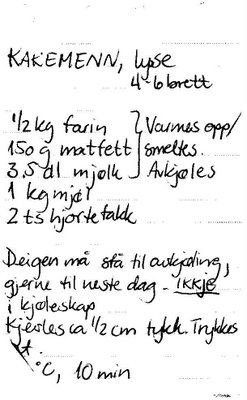 KAKEMENN, lyse
4-6 brett
1/2 kg farin
150 g matfett
3,5 dl mjølk
Varmes opp/
smeltes.
Avkjøles
1 kg mjøl
2 ts hjortetakk
Deigen må stå til avkjøling,
gjerne til neste dag - ikkje
i kjøleskap
Kjevles ca 1/2 cm tykk. Trykkes
°C, 10 min